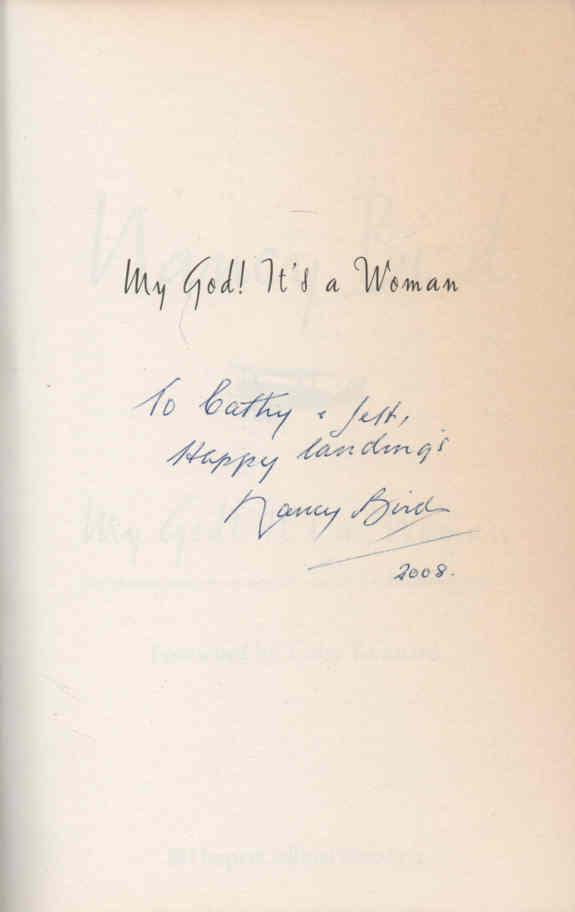 My God! It's a Woman
To Cathy & Jeff,
Happy landings
Nancy Bird
2008.